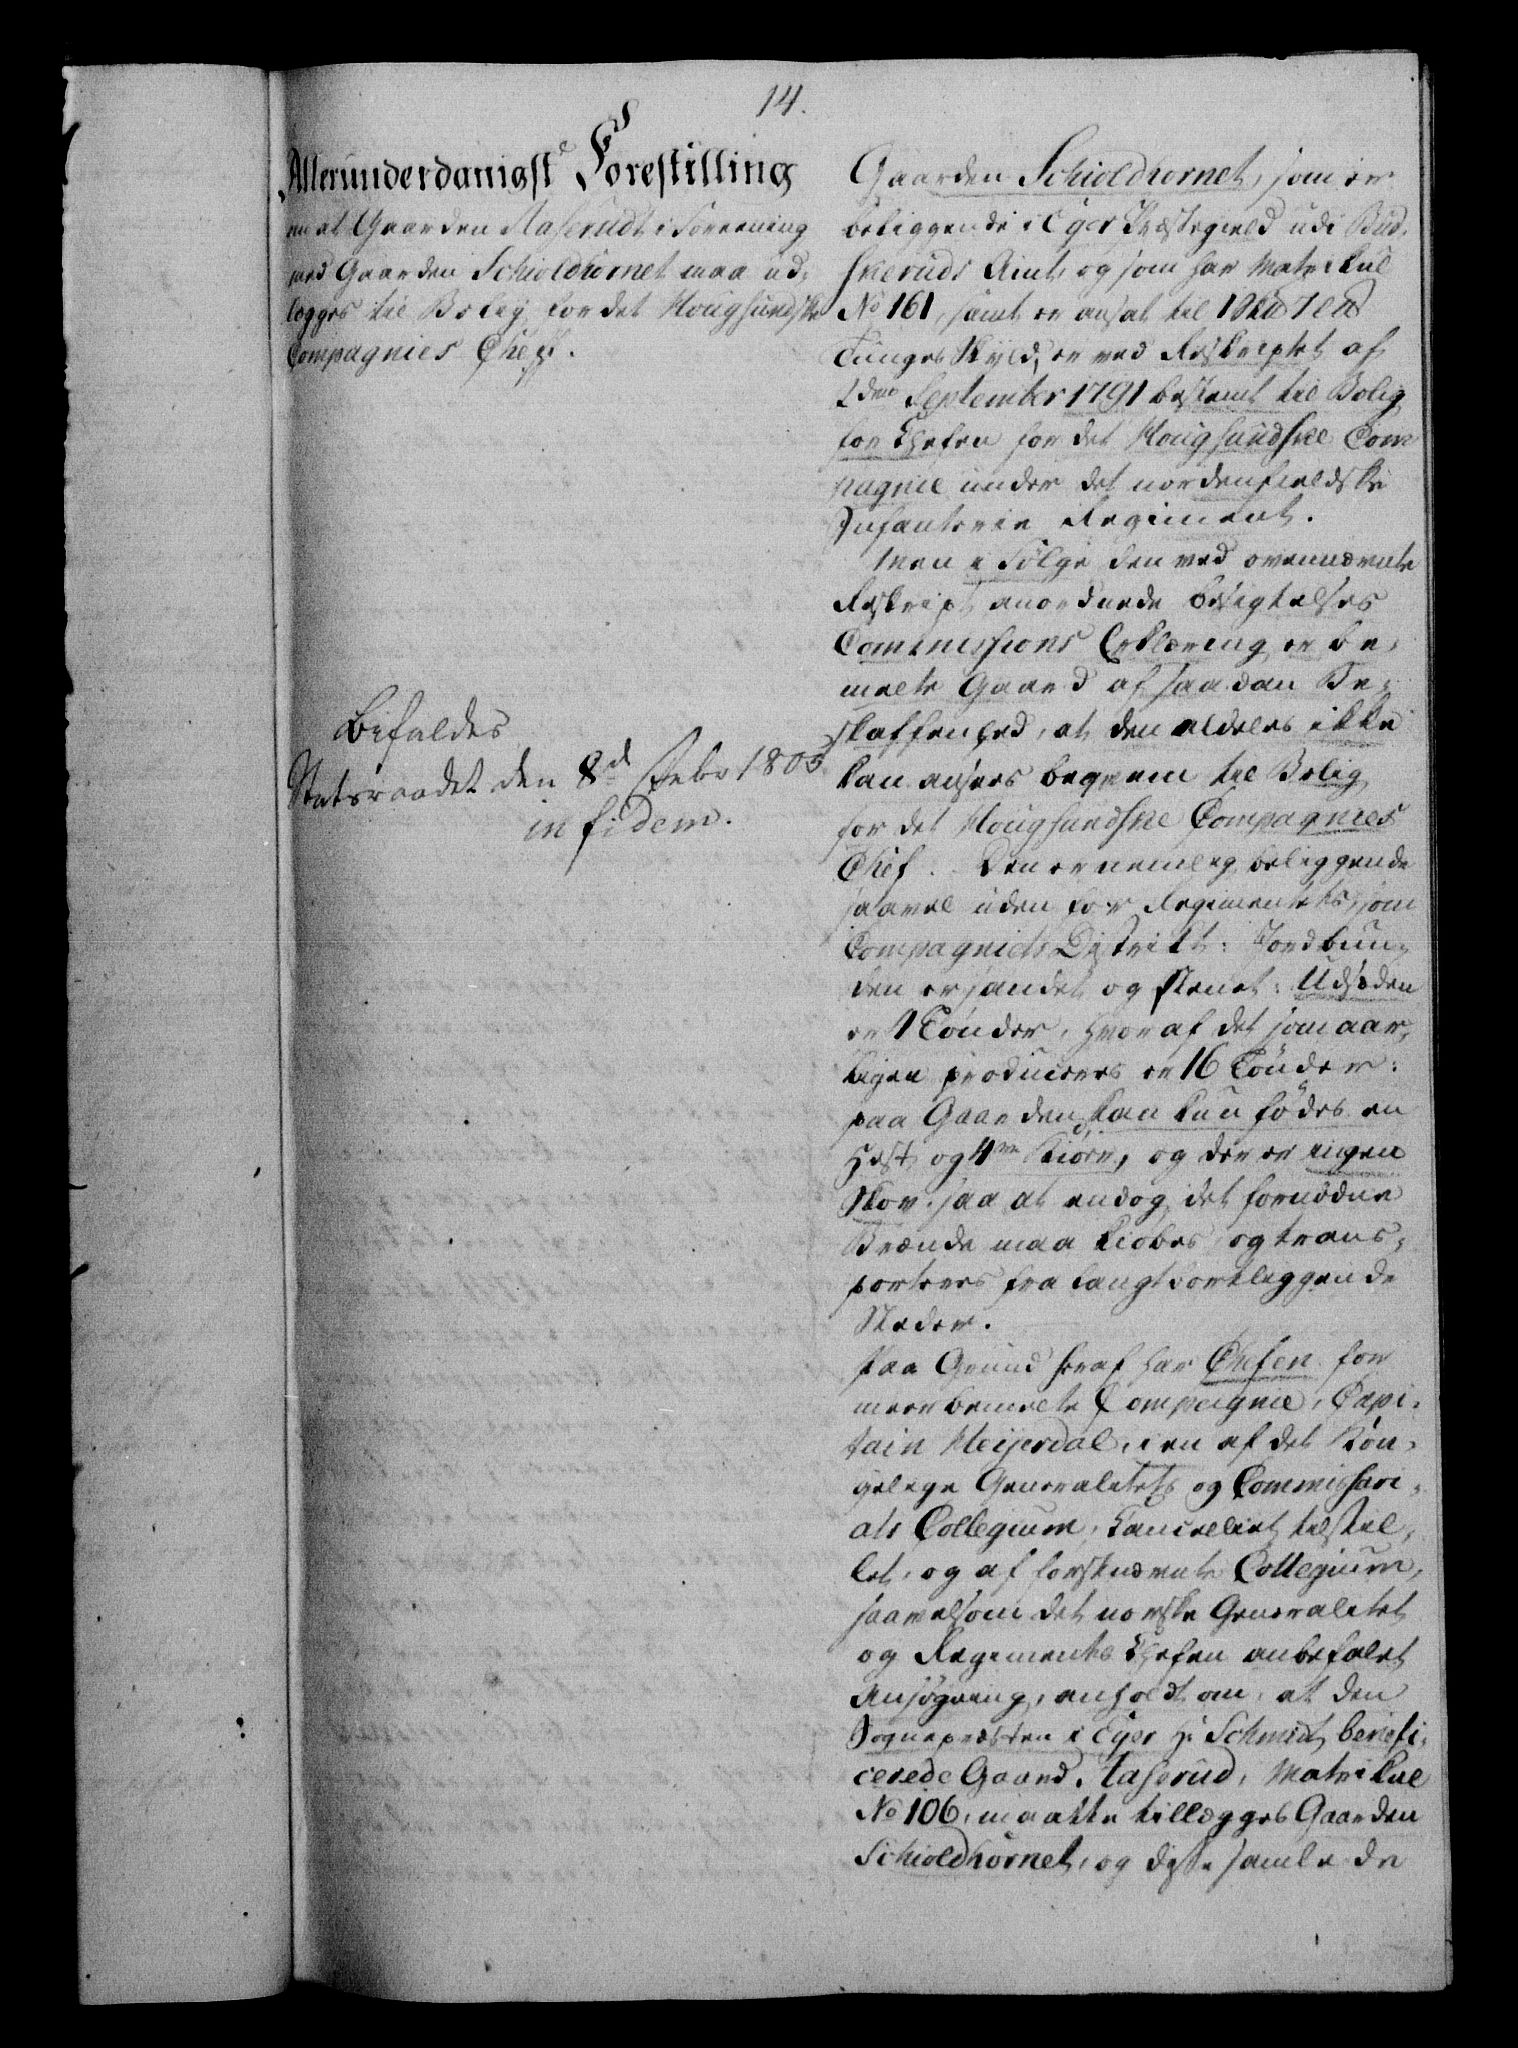 14.
Allerunderdanigste Forestilling
om at Gaarden Staserudt i Foreening
med Gaarden Schioldhornet maa ud,
lægges til Bolig for det Hougsundske
Compagnies Cheff.
Befaldes
Statsraadet den 8d Febr 1805
in fidem.
Gaarden Schioldhornet, som er
beliggende i Eger Præstegield udi Bud,
skeruds Amt, og som har Matrikul
No 161, samt er ansat til
Tunges Skyld, er ved Reskriptet af
2den September 1791 bestemt til Bolig
for Chefen for det Hougsundske Com
pagnie under det nordenfieldske
Infanterie Regiment.
Men i Følge den ved ovennævnte
Reskript anordnede Besigtelses
Commissions Erklæring er be,
meldte Gaard af saadan Be,
skaffenhed, at den aldeles ikke
kan ansees beqvem til Bolig
for det Hougsundske Compagnies
Chef. Den er nemlig beliggende
saavel uden for Regimentets som
Compagniets Distrikt: Jordbun,
den er sandet og stenet: Udsæden
er Tønder, hvoraf det som aar,
ligen produceres er 16 Tønder:
paa Gaarden kan kun fødes en
Hest og 4re Kiøer, og der er ingen
Skov, saa at endog det fornødne
Brænde maa kiøbes og trans,
porteres fra langtbortliggende
Steder.
Paa Grund heraf har Chefen for
meerbemeldte Compagnie, Capi,
tain Meijerdal, i en af det Kon,
gelige Generalitets og Commissari,
ats Collegium, Cancelliet tilstil,
let, og af førstnævnte Collegium,
saavelsom det norske Generalitet
og Regiments Chefen anbefalet
Ansøgning, anholdt om, at den
Sognepræsten i Eger Hr Schmidt benefi,
cerede Gaard, Staserud, Matrikul
No 106, maatte tillægges Gaarden
Schioldhornet, og disse samlede